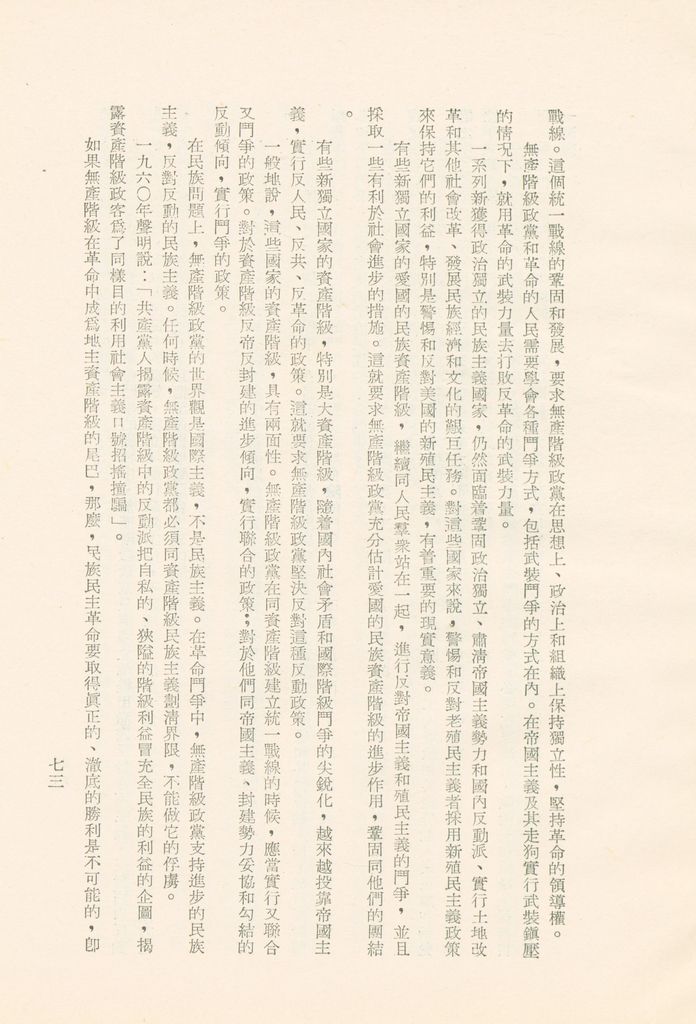 戰線。這個統一戰線的鞏固和發展，要求無產階級政黨在思想上、政治上和組織上保持獨立性，堅持革命的領導權。
無產階級政黨和革命的人民需要學會各種鬥爭方式，包括武裝鬥爭的方式在內。在帝國主義及其走狗實行武裝鎭壓
的情况下，就用革命的武裝力量去打敗反革命的武裝力量。
一系列新獲得政治獨立的民族主義國家，仍然面臨着鞏固政治獨立、肅淸帝國主義勢力和國內反動派、實行土地改
革和其他社會改革、發展民族經濟和文化的艱巨任務。對這些國家來說，警惕和反對老殖民主義者採用新殖民主義政策
來保持它們的利益，特別是警惕和反對美國的新殖民主義，有着重要的現實意義。
有些新獨立國家的愛國的民族資產階級，繼續同人民羣衆站在一起，進行反對帝國主義和殖民主義的鬥爭，並且
採取一些有利於社會進步的措施。這就要求無產階級政黨充分估計愛國的民族資產階級的進步作用，鞏固同他們的團結
。
有些新獨立國家的資產階級，特別是大資產階級，隨着國內社會矛盾和國際階級鬥爭的尖銳化，越來越投靠帝國主
義，實行反人民、反共、反革命的政策。這就要求無產階級政黨堅決反對這種反動政策。
一般地說，這些國家的資產階級，具有兩面性。無產階級政黨在同資產階級建立統一戰線的時候，應當實行又聯合
又鬥爭的政策。對於資產階級反帝反封建的進步傾向，實行聯合的政策；對於他們同帝國主義、封建勢力妥協和勾結的
反動傾向，實行鬥爭的政策。
在民族問題上，無產階級政黨的世界觀是國際主義，不是民族主義。在革命鬥爭中，無產階級政黨支持進步的民族
主義，反對反動的民族主義。任何時候，無產階級政黨都必須同資產階級民族主義劃淸界限，不能做它的俘虜。
一九六〇年聲明說：「共產黨人揭露資產階級中的反動派把自私的、狹隘的階級利益冒充全民族的利益的企圖，揭
露資產階級政客爲了同樣目的利用社會主義口號招搖撞騙」。
如果無產階級在革命中成爲地主資產階級的尾巴，那麼，民族民主革命要取得眞正的、澈底的勝利是不可能的，卽
七三